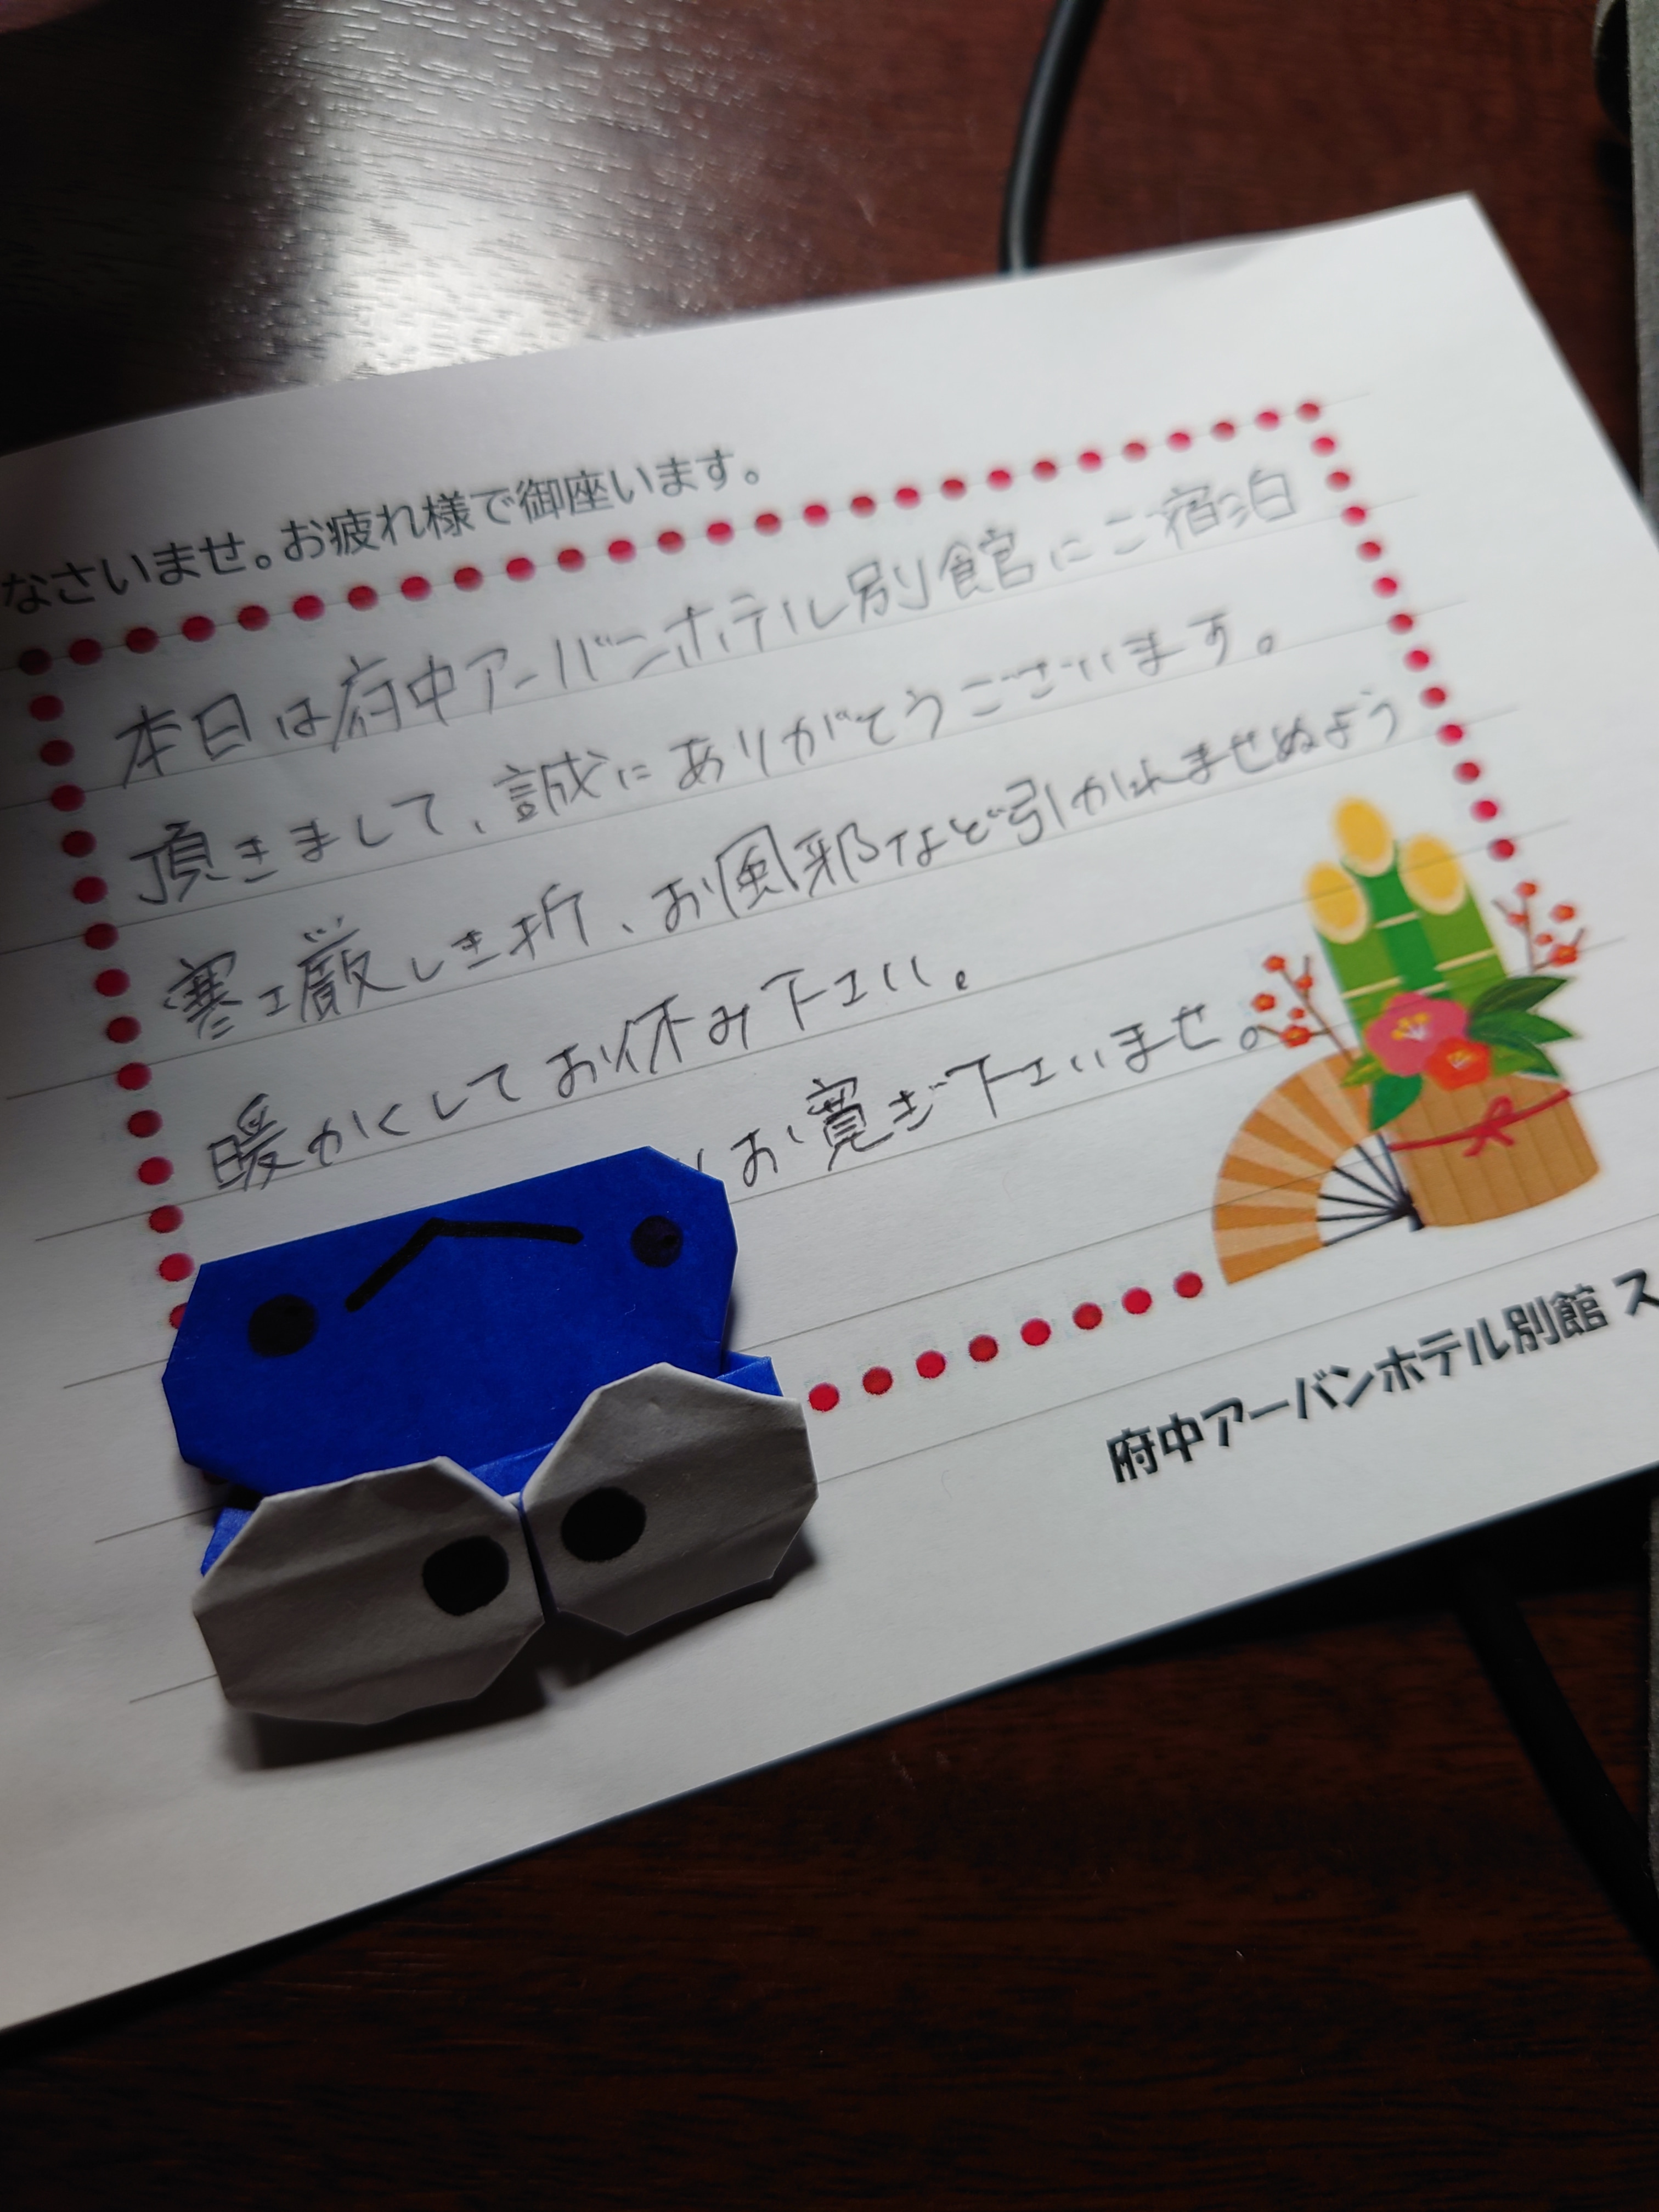 なさいませ。お疲れ様で御座います。
本日は府中アーバンホテル別館にご宿泊
頂きまして、誠にありがとうございます。
寒エ厳しき折、お風邪など引かれませぬよう
暖かくしてお休み下エい。
お寛ぎ下エいませ。
府中アーバンホテル別館 ス